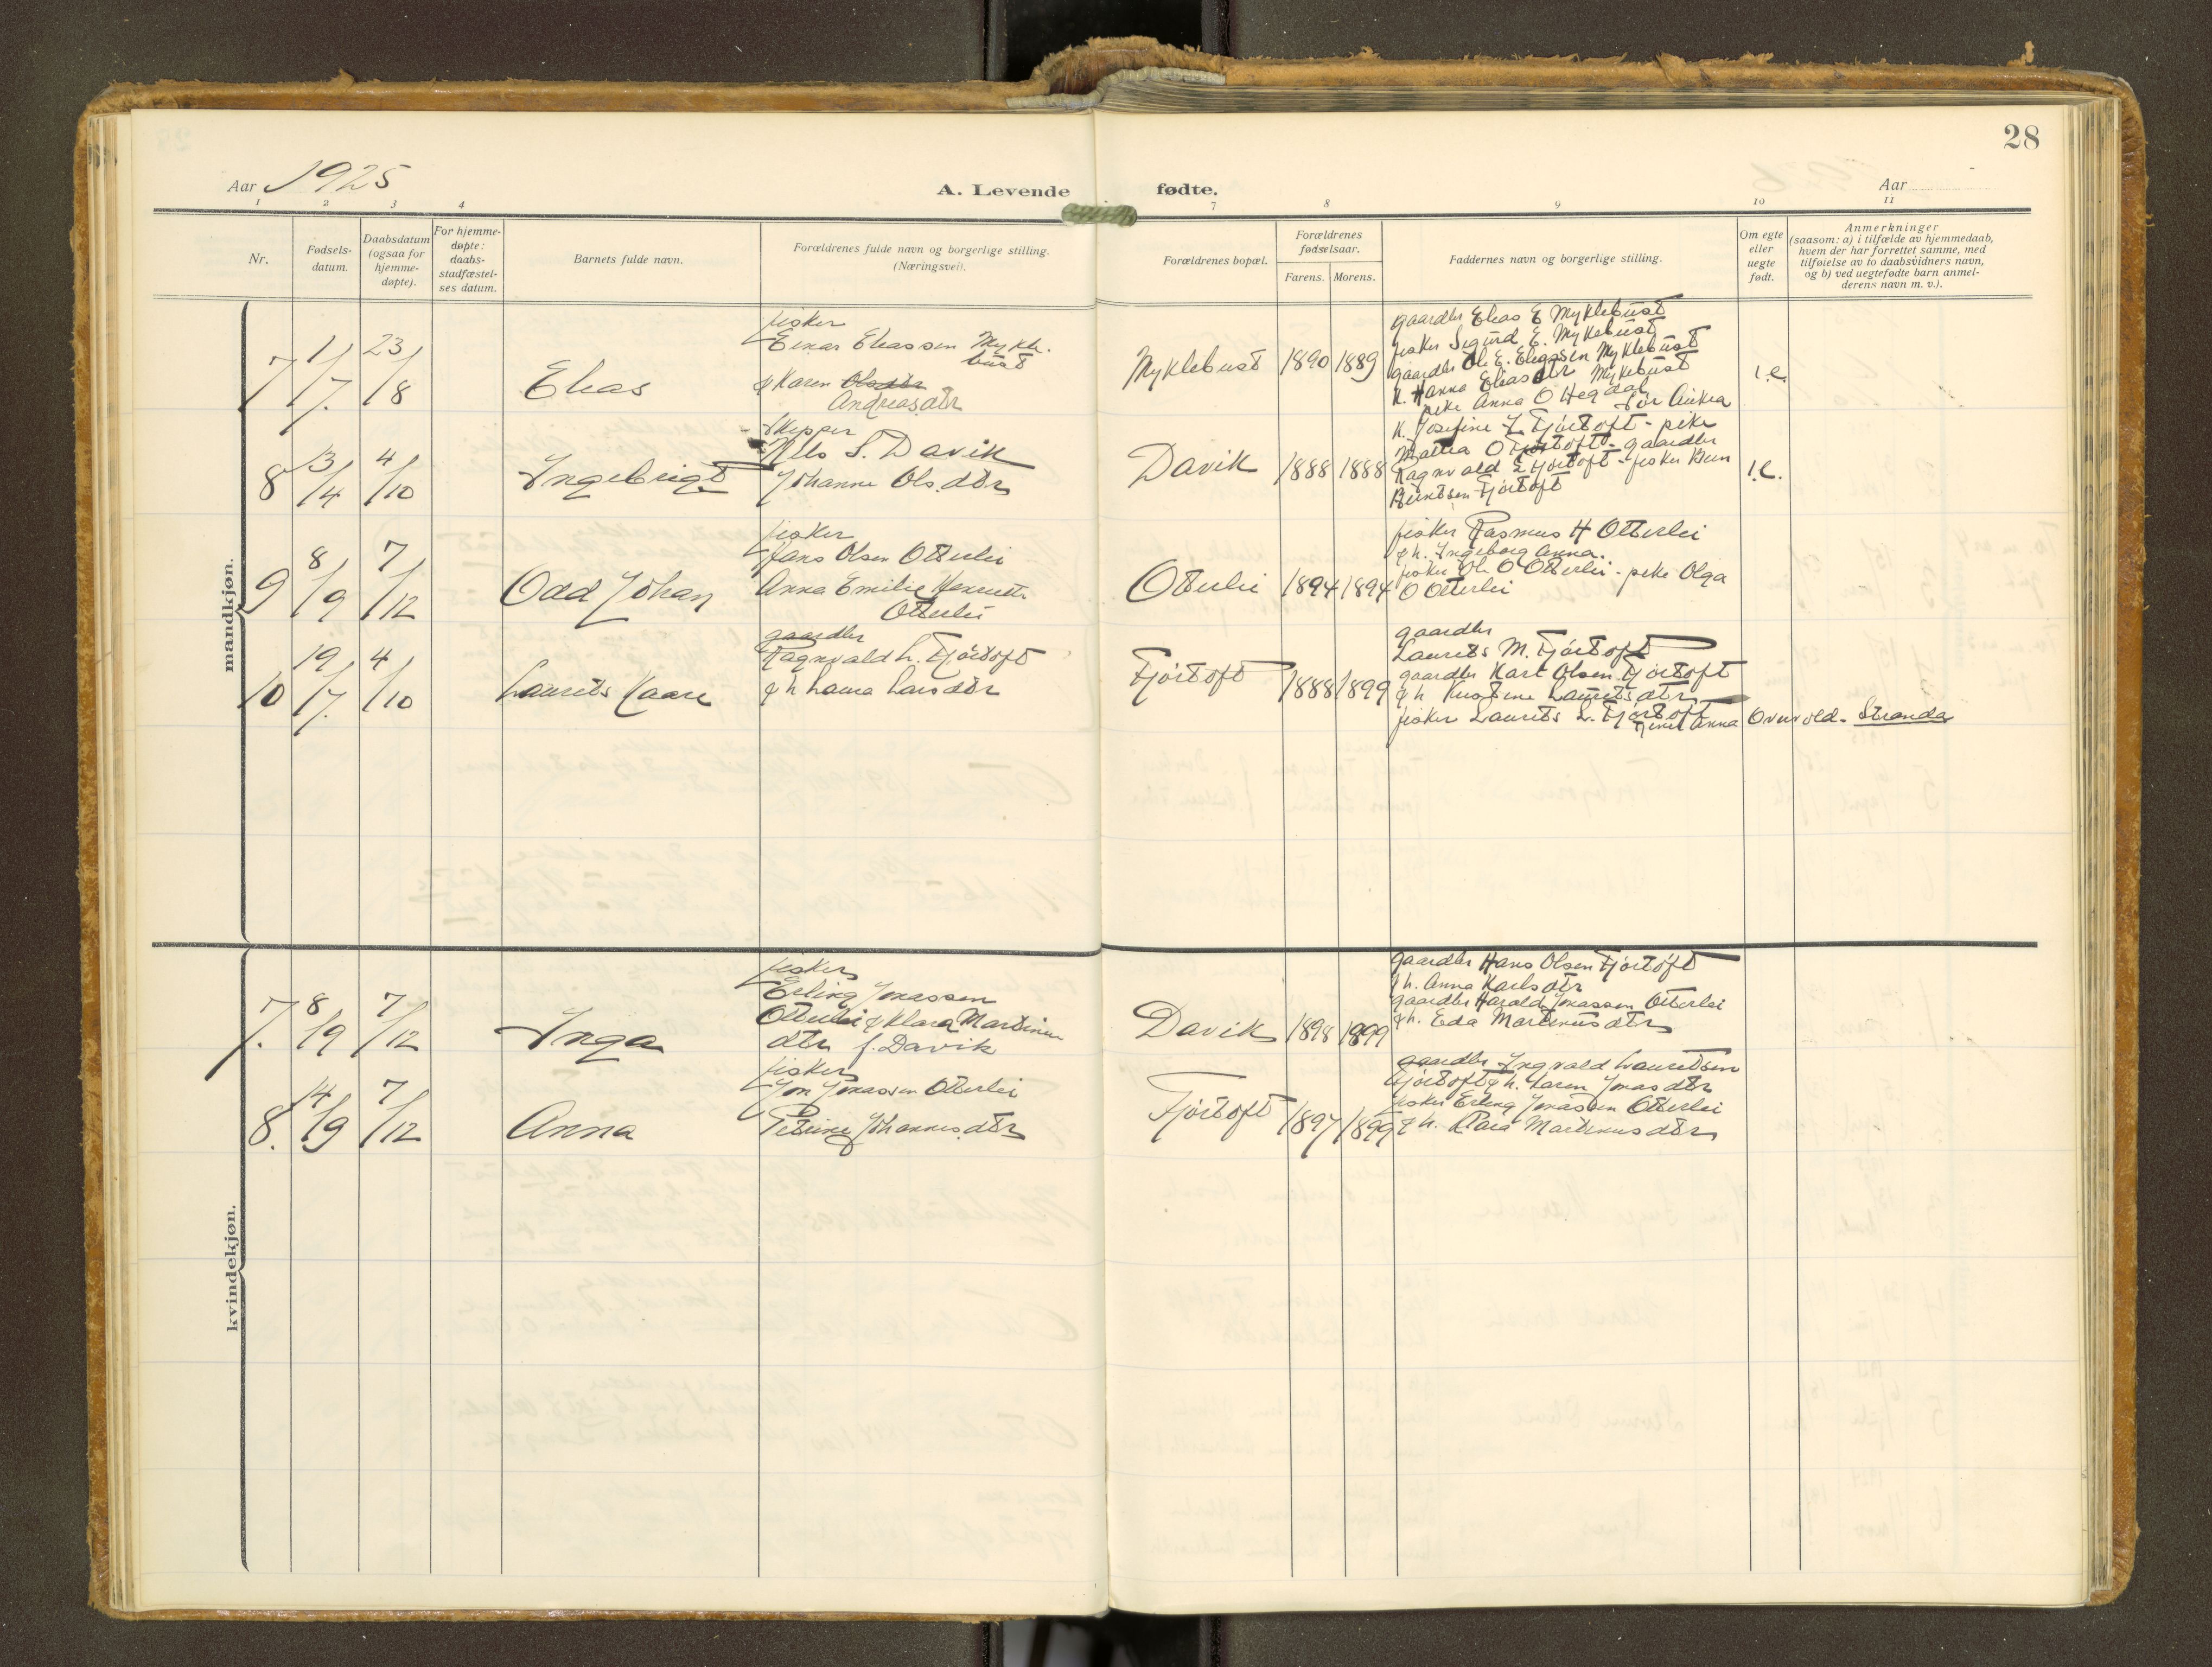 28
Aar 1925
A. Levende fødte.
Aar
1 2 3 4 7 8 9 10 11
Nr.
Fødsels-
datum.
Daabsdatum
(ogsaa for
hjemme-
døpte).
For hjemme-
døpte:
daabs-
stadfæstel-
ses datum.
Barnets fulde navn.
Forældrenes fulde navn og borgerlige stilling.
(Næringsvei).
Forældrenes bopæl.
Forældrenes
fødselsaar.
Farens. Morens.
Faddernes navn og borgerlige stilling.
Om egte
eller
uegte
født.
Anmerkninger
(saasom: a) i tilfælde av hjemmedaab,
hvem der har forrettet samme, med
tilføielse av to daabsvidners navn,
og b) ved uegtefødte barn anmel-
derens navn m. v.).
mandkjøn.
7
1/7.
23/8
Elias
fisker
Einar Eliassen Mykle-
bust
& Karen Olsdtr
Andreasdtr
Myklebust
1890
1889
gaardbr Elias E Myklebust
fisker Sigurd E. Myklebust
gaardbr Ole E. Eliassen Myklebust
K. Hanna Eliasdtr Myklebust
pike Anna O Hegdal
Sør Aukra
1.e.
8
13/4
4/10
Ingebrigt
Skipper
Nils S. Davik
Johanne Ols.dtr
Davik
1888
1888
K. Josefine L Fjørtoft - pike
Mattea O Fjørtoft - gaardbr
Ragnvald L Fjørtoft - fisker
Berntsen Fjørtoft
1.e.
9
8/9
7/12
Odd Johan
fisker
Hans Olsen Otterlei
Anna Emilie
Otterlei
Otterlei
1894
1894
fisker Rasmus H Otterlei
& h. Ingeborg Anna.
fisker Ole O Otterlei - pike Olga
O Otterlei
10
19/7.
4/10
Laurits Kaare
gaardbr
Ragnvald L. Fjørtoft
& h Laura Larsdtr
Fjørtoft
1888
1899
gaardbr
Laurits M. Fjørtoft
gaardbr Karl Olsen Fjørtoft
& h Kristine Lauritsdtr
fisker Laurits L. Fjørtoft
Anna Overvold - Stranda
kvindekjøn.
7.
8/9
7/12
Inga
fisker
Erling Jonassen
Otterlei & Klara Martinus
dtr f. Davik
Davik
1898
1899
gaardbr Hans Olsen Fjørtoft
& h. Anna Karlsdtr
gaardbr Harald Jonassen Otterlei
& h. Eda Martinusdtr
8.
14/9
7/12
Anna
fisker
Jon Jonassen Otterlei
Petrine Johannesdtr
Fjørtoft
1897
1899
gaardbr Ingvald Lauritsen
Fjørtoft & h. Karen Jonasdtr
fisker Erling Jonassen Otterlei
& h. Klara Martinusdtr